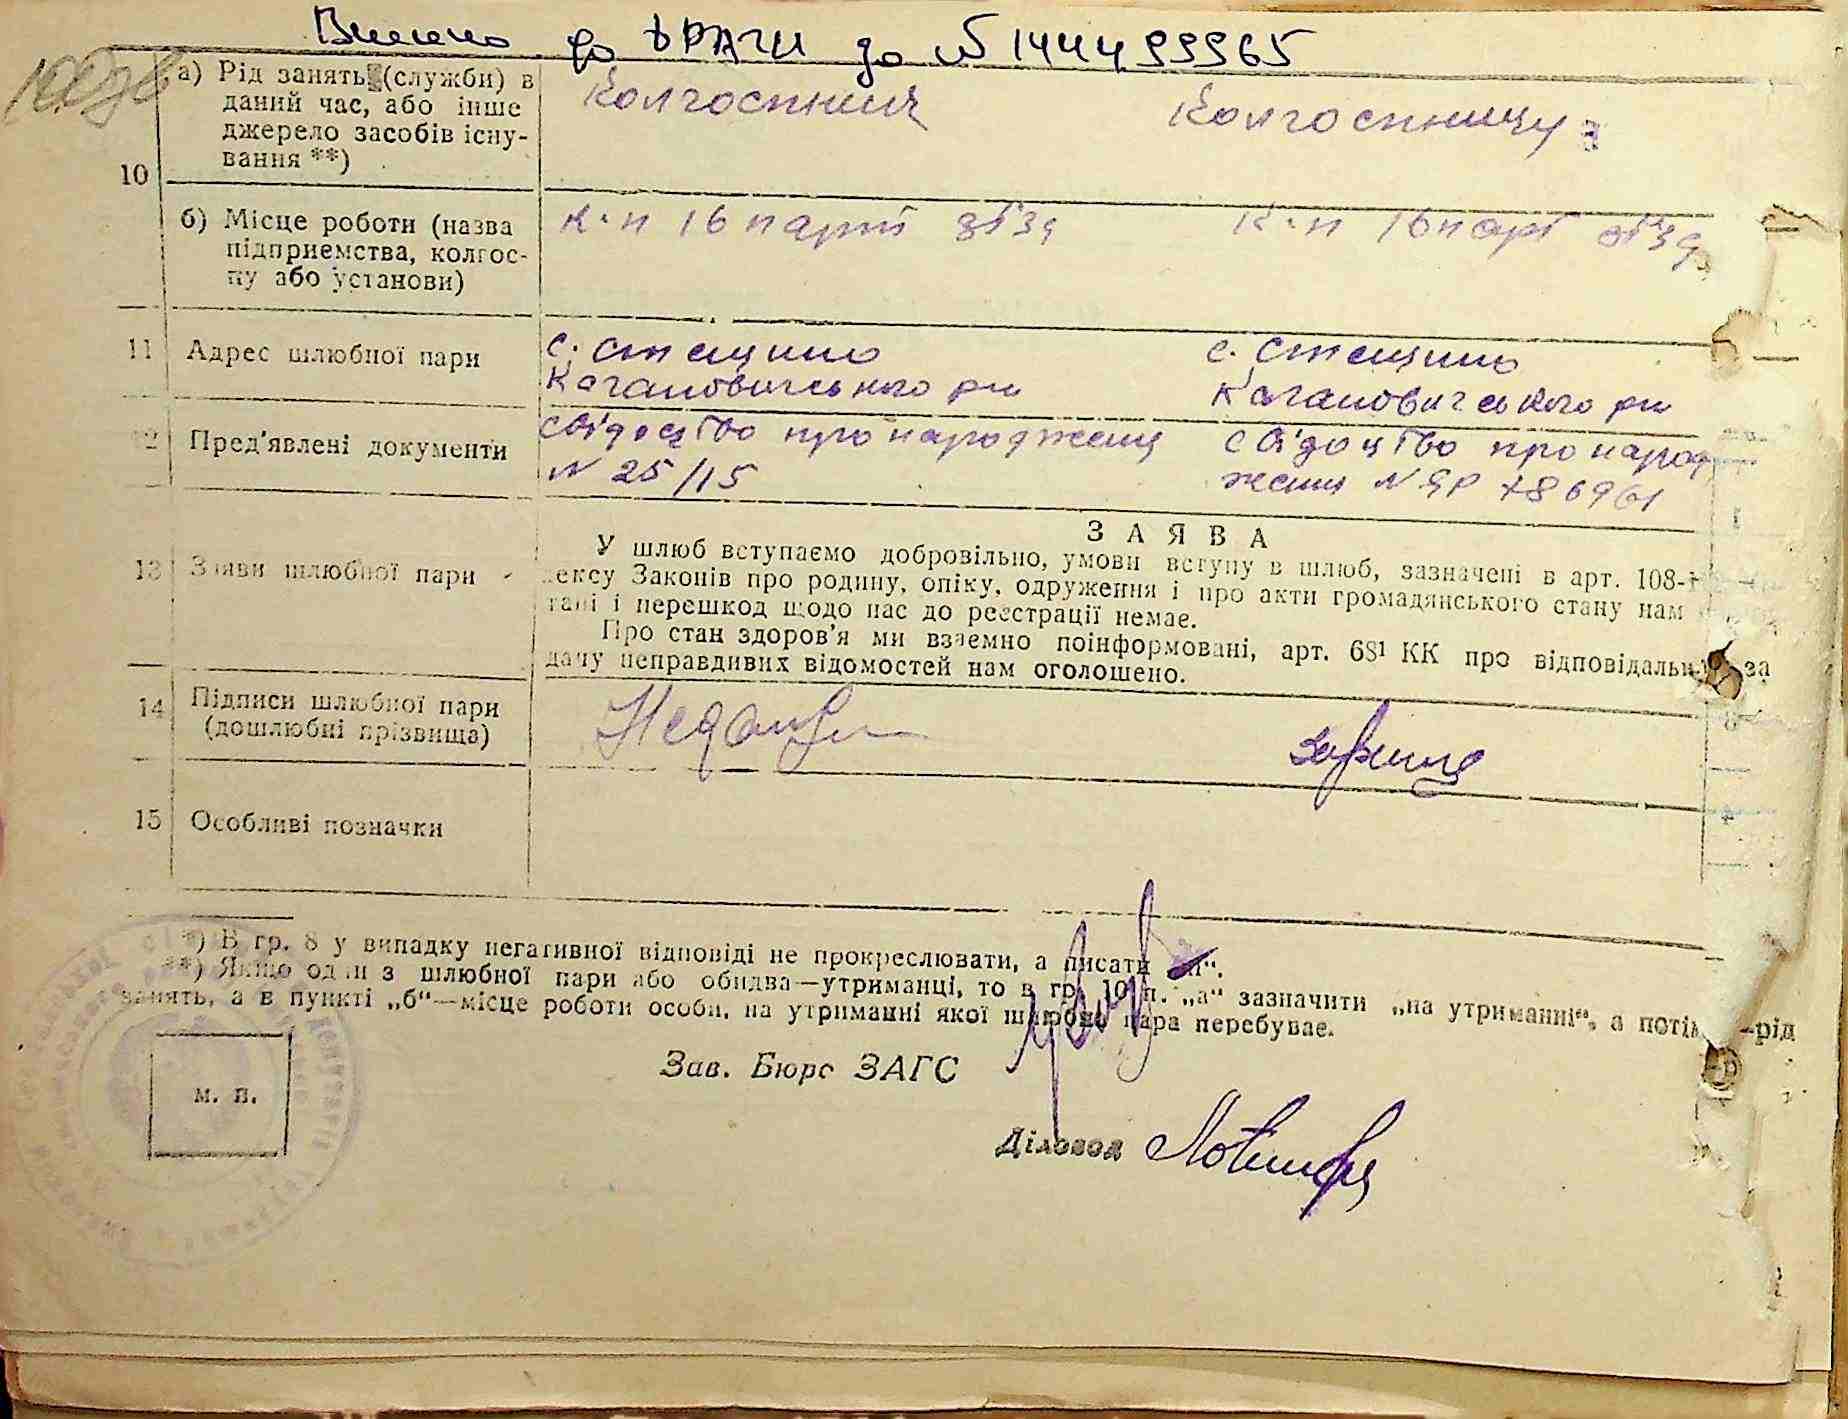 Внесено до ДРАЦС за № 1444999965
10
а) Рід занять (служби) в даний час, або інше джерело засобів існування **)
Колгоспник
Колгоспниця
б) Місце роботи (назва підприємства, колгоспу або установи)
К-п 16 парт зїзд
К-п 16 парт зїзд
11 Адрес шлюбної пари
с. Стещино
Кагановичського р-ну
с. Стещино
Кагановичського р-ну
12 Пред'явлені документи
свідоцтво про народження
N 25/15
свідоцтво про народ
ження N ЯР 786961
13 Заяви шлюбної пари
ЗАЯВА
У шлюб вступаємо добровільно, умови вступу в шлюб, зазначені в арт. 108-
дексу Законів про родину, опіку, одруження і про акти громадянського стану нам
і перешкод щодо нас до реєстрації немає.
Про стан здоров'я ми взаємно поінформовані, арт. 68¹ КК про відповідальн за
дачу неправдивих відомостей нам оголошено.
14 Підписи шлюбної пари
(дошлюбні прізвища)
15 Особливі позначки
*) В гр. 8 у випадку негативної відповіді не прокреслювати, а писати „ні“.
**) Якщо один з шлюбної пари або обидва—утриманці, то в гр. 10 п. „а“ зазначити „на утриманні“, а потім—рід
занять, а в пункті „б“—місце роботи особи, на утриманні якої шлюбна пара перебуває.
Зав. Бюро ЗАГС
м. п.
Діловод